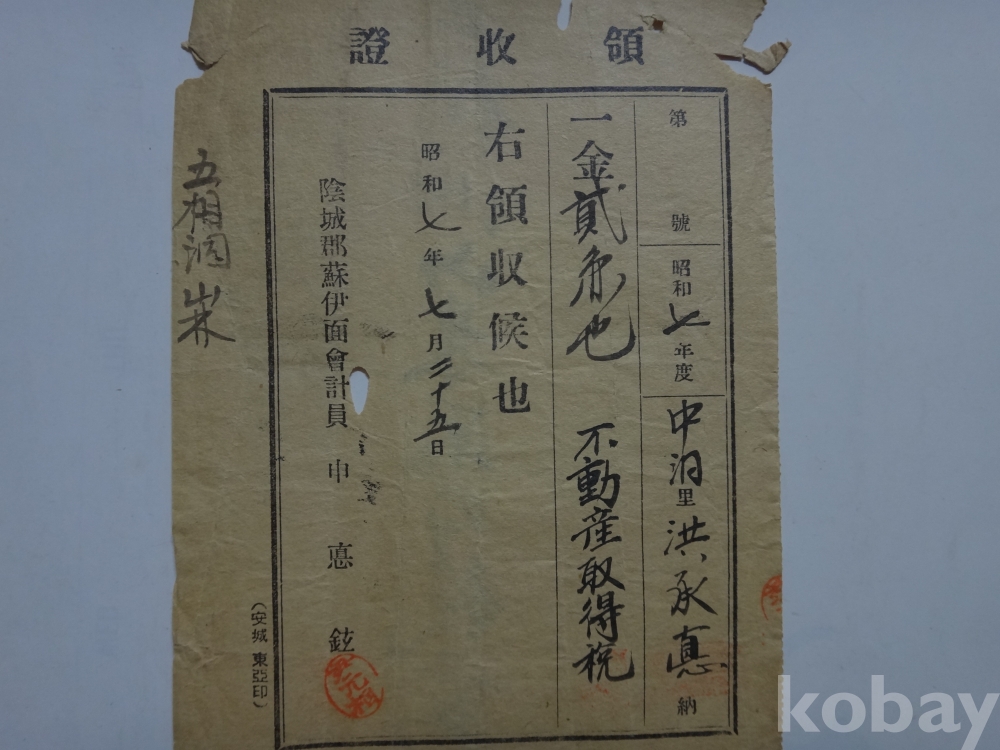 領收證
第 號 昭和七年度 中泪里 洪承悳 納
一金貳 也 不動産取得稅
右領收候也
昭和七年七月二十五日
陰城郡蘇伊面會計員 申悳鉉
(安城 東亞印)
五相洞
kobay